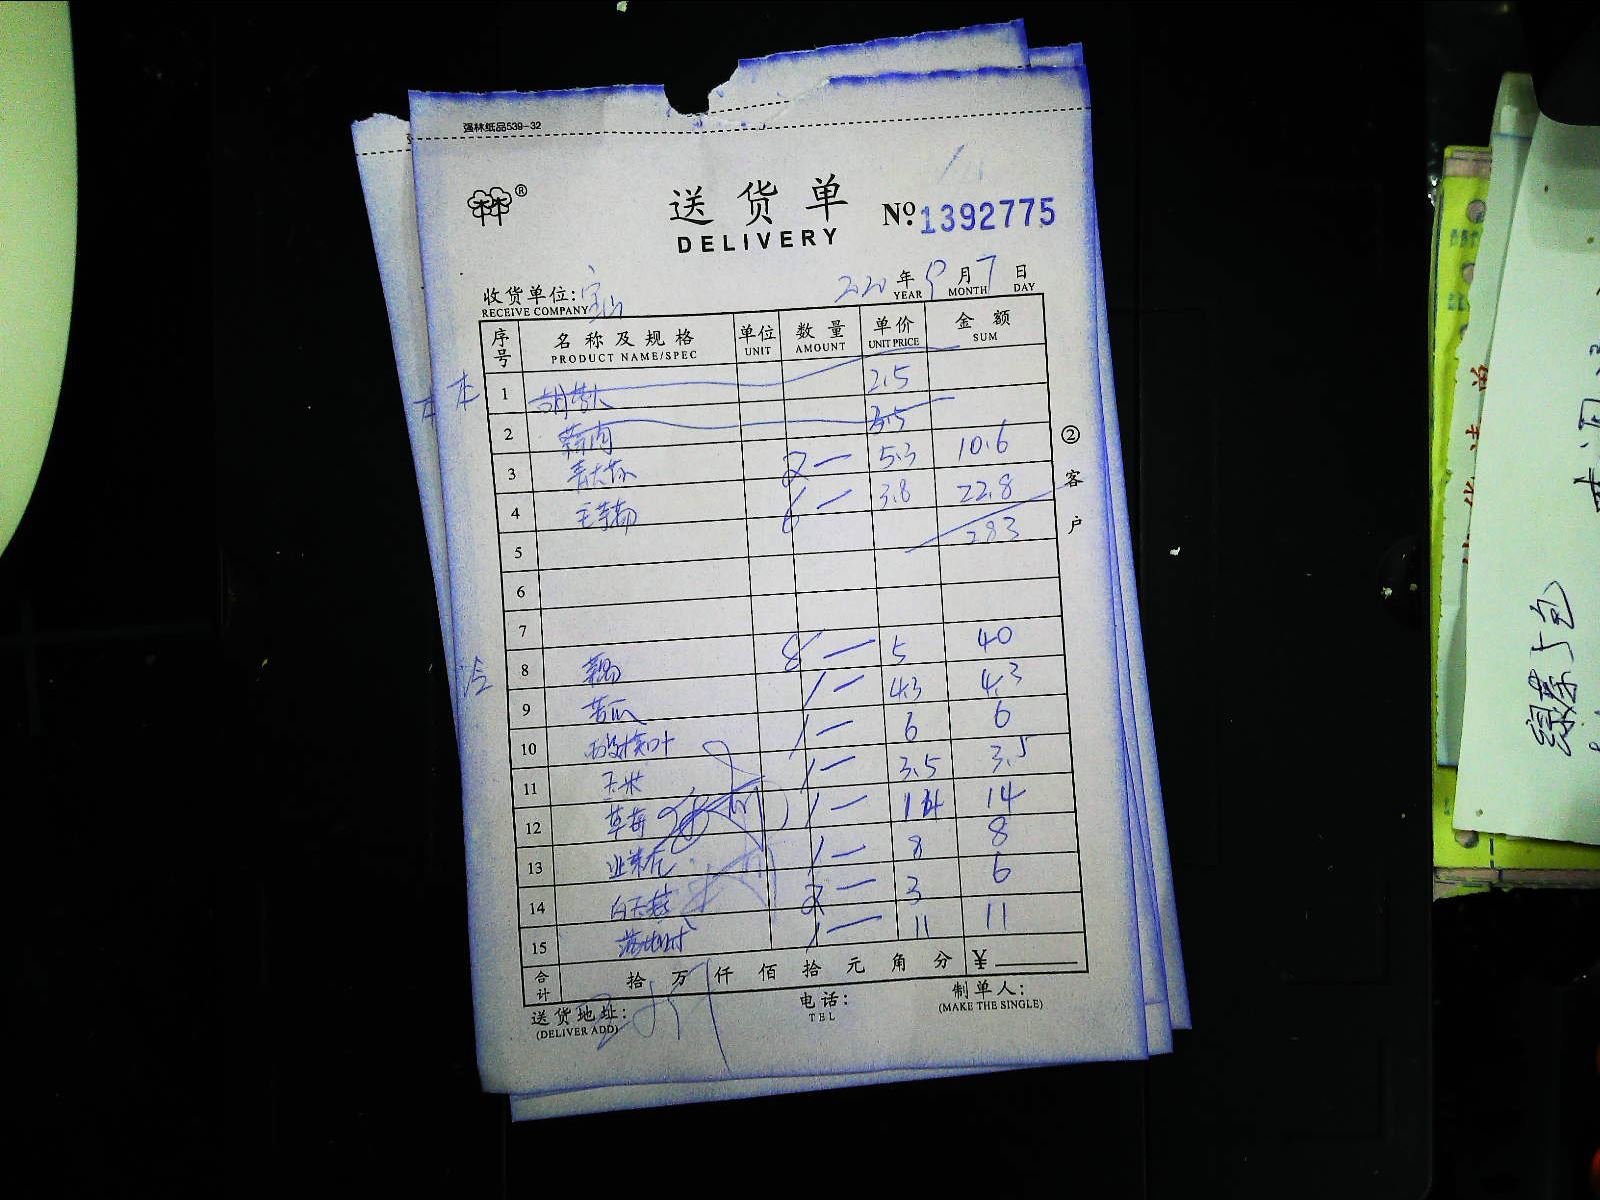 强林纸品539-32
®
送货单
DELIVERY
№ 1392775
收货单位:
RECEIVE COMPANY
2020 年 9 月 7 日
YEAR MONTH DAY
序号 名称及规格 单位 数量 单价 金额
PRODUCT NAME/SPEC UNIT AMOUNT UNIT PRICE SUM
本 本
1 2.5
2 蒜肉 3.5
3 2 5.3 10.6
4 6 3.8 22.8
5 283
6
7
8 藕 8 5 40
9 苦瓜 1 4.3 4.3
10 1 6 6
11 玉米 1 3.5 3.5
12 草莓 1 14 14
13 1 8 8
14 白玉菇 2 3 6
15 1 11 11
合计 拾 万 仟 佰 拾 元 角 分 ¥
送货地址:
(DELIVER ADD)
电话:
TEL
制单人:
(MAKE THE SINGLE)
②客户
绿茶5包